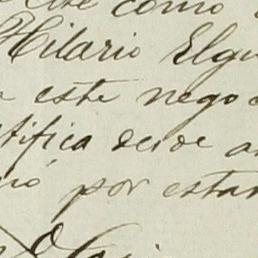 como
Hilario Elgu
este nego
tifica desde a
por estar